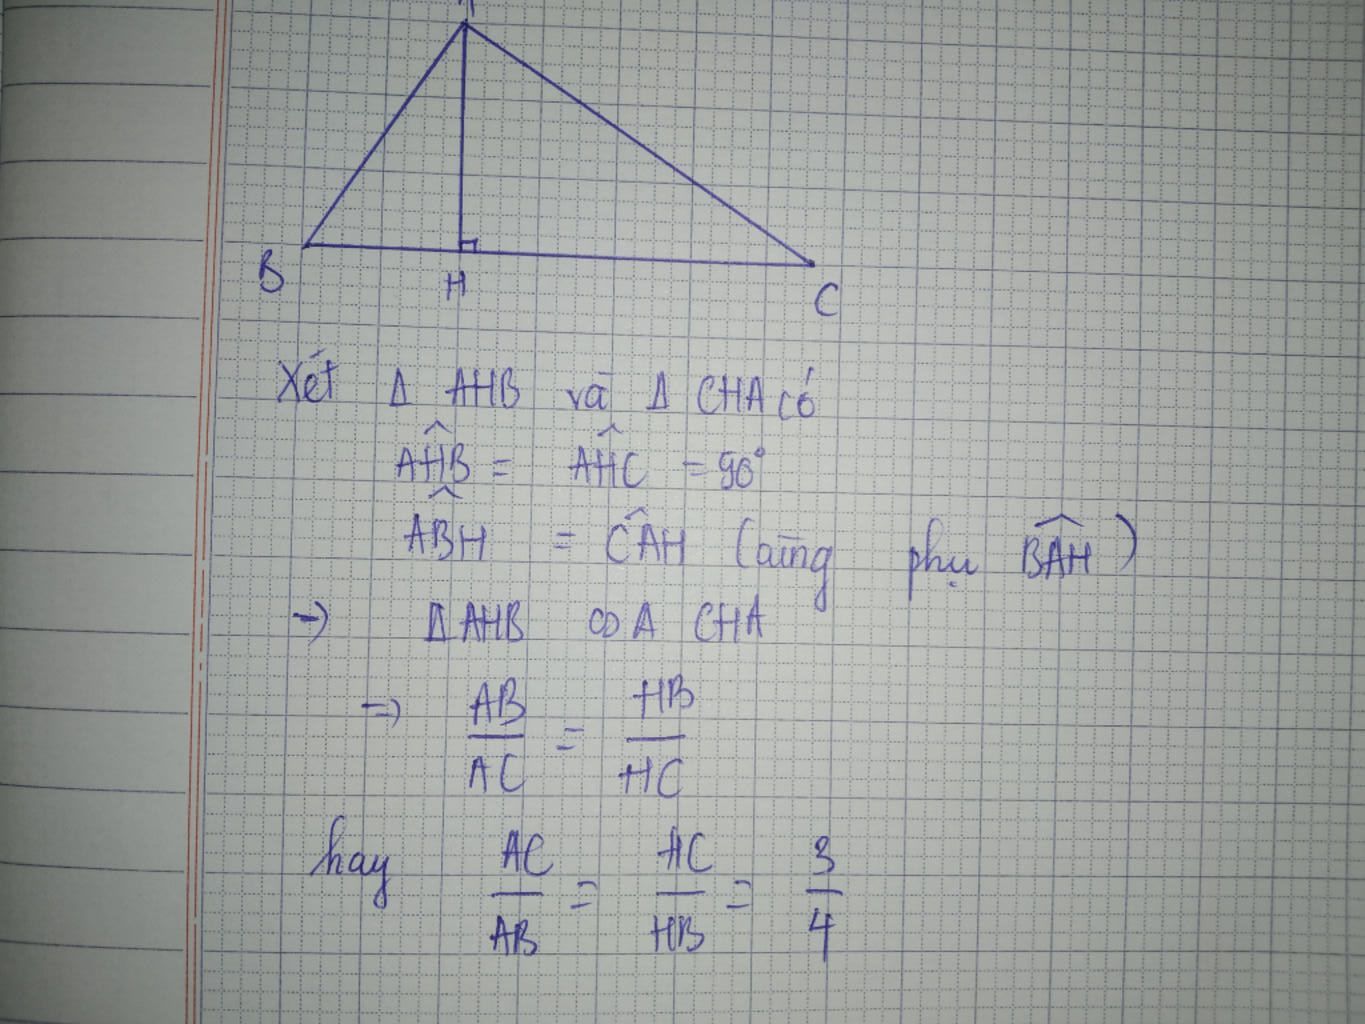 A
B
H
C
Xét Δ AHB và Δ CHA có
AĤB = AĤC = 90°
AB̂H = CÂH (cùng phụ BÂH)
→ Δ AHB ∽ Δ CHA
⇒ AB/AC = HB/HC
hay AC/AB = HC/HB = 3/4